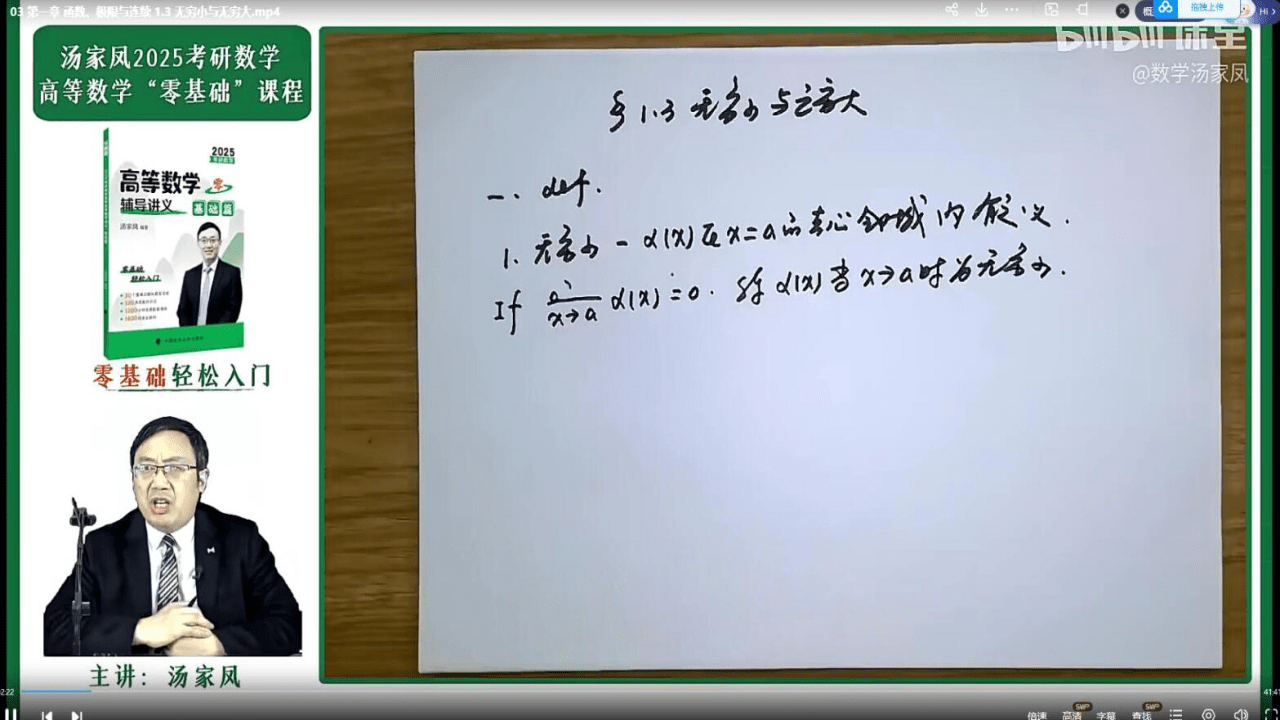 03 第一章 函数、极限与连续 1.3 无穷小与无穷大.mp4
拖拽上传
Hi
bilibili课堂
@数学汤家凤
汤家凤2025考研数学
高等数学“零基础”课程
2025
高等数学 零
辅导讲义 基础篇
汤家凤 编著
零基础
轻松入门
零基础轻松入门
主讲：汤家凤
§1.3 无穷小与无穷大
一. def.
1. 无穷小 - α(x)在x=a的去心邻域内有定义.
If x→a α(x)=0. 称α(x)当x→a时为无穷小.
2:22
41:41
倍速 高清 字幕 查找
SVIP SVIP